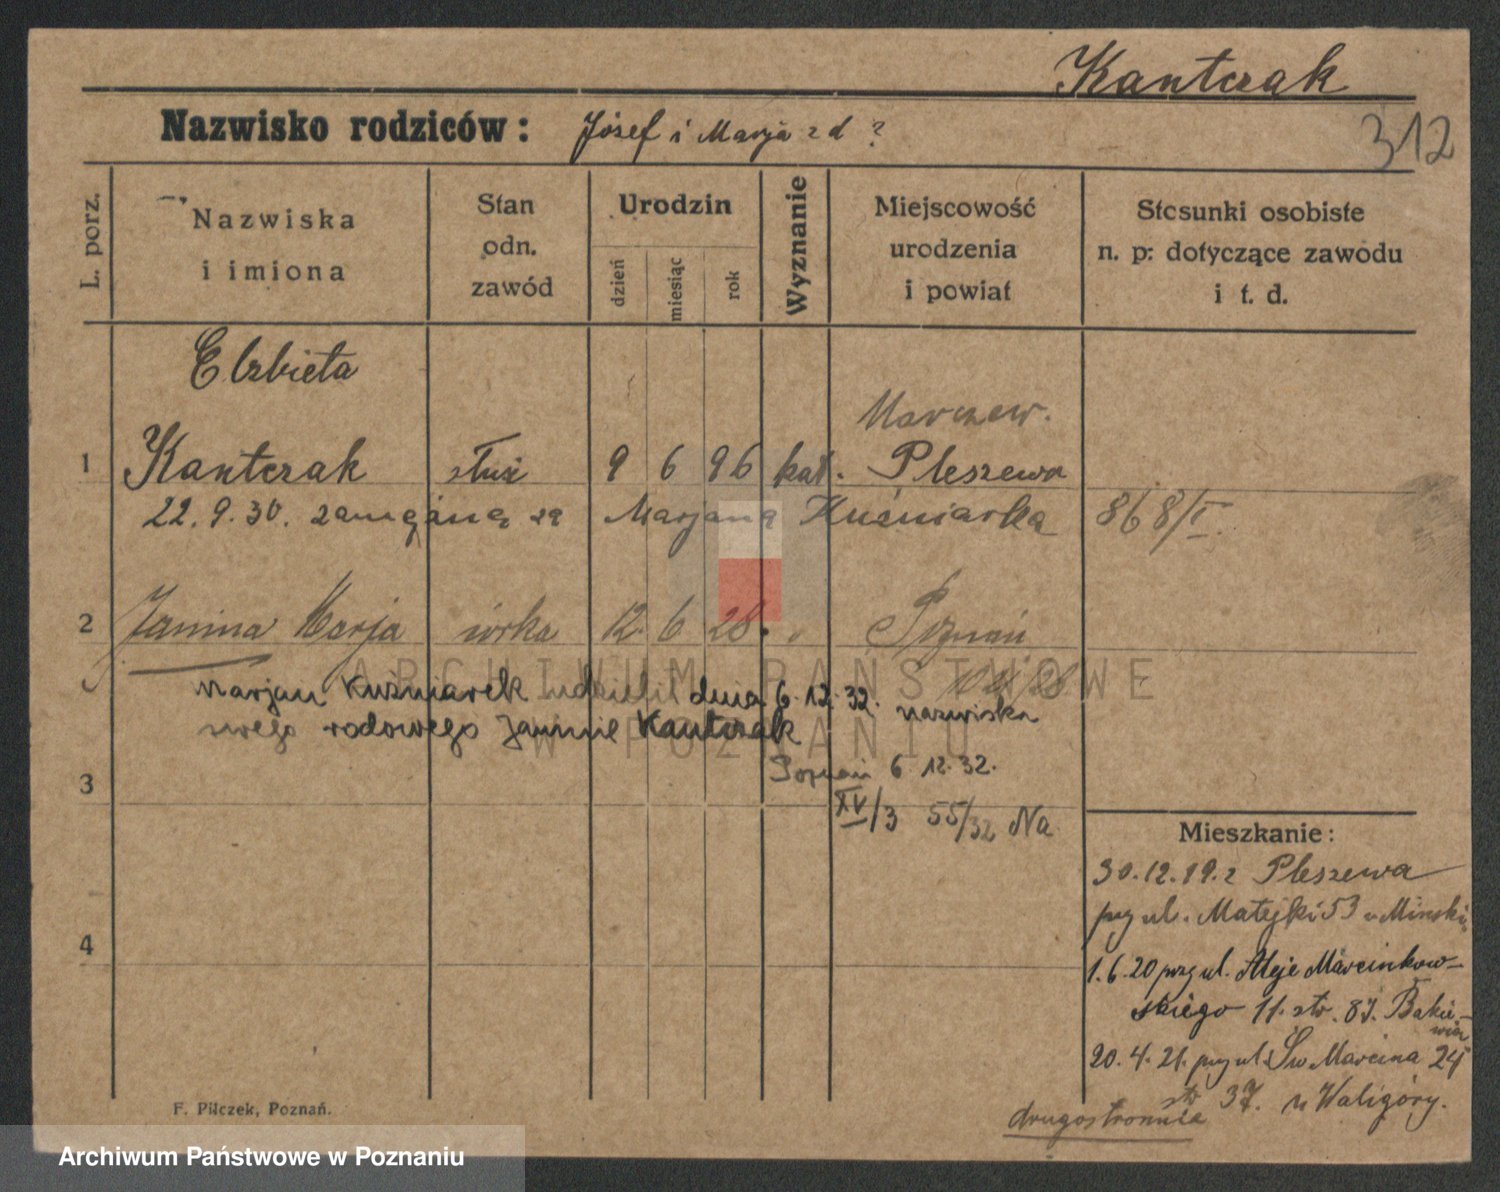 Kantczak
Nazwisko rodziców: Józef i Marja z d ?
312
L. porz.
Nazwiska
i imiona
Stan
odn.
zawód
Urodzin
dzień
miesiąc
rok
Wyznanie
Miejscowość
urodzenia
i powiat
Stosunki osobiste
n. p: dotyczące zawodu
i t. d.
Elżbieta
Marczew.
1 Kantczak służ 9 6 96 kat. Pleszewa
22. 9. 30. zamężną za Marjaną Kuźniarka 868/I
2 Janina Marja córka 12. 6 28. Poznań
Marjan Kuźniarek udzielił dnia 6. 12. 32. nazwiska
swego rodowego Janinie Kantczak
Poznań 6. 12. 32.
3
XV/3 55/32 Na
Mieszkanie:
30. 12. 19. z Pleszewa
przy ul. Matejki 53 u Minski
4
1. 6. 20 przy ul. Aleje Marcinkow-
skiego 11. str. 87. Bakie-
wicz
20. 4. 21. przy ul. Św Marcina 24
str 37. u Waligóry.
drugostronnie
F. Pilczek, Poznań.
ARCHIWUM PAŃSTWOWE
W POZNANIU
Archiwum Państwowe w Poznaniu